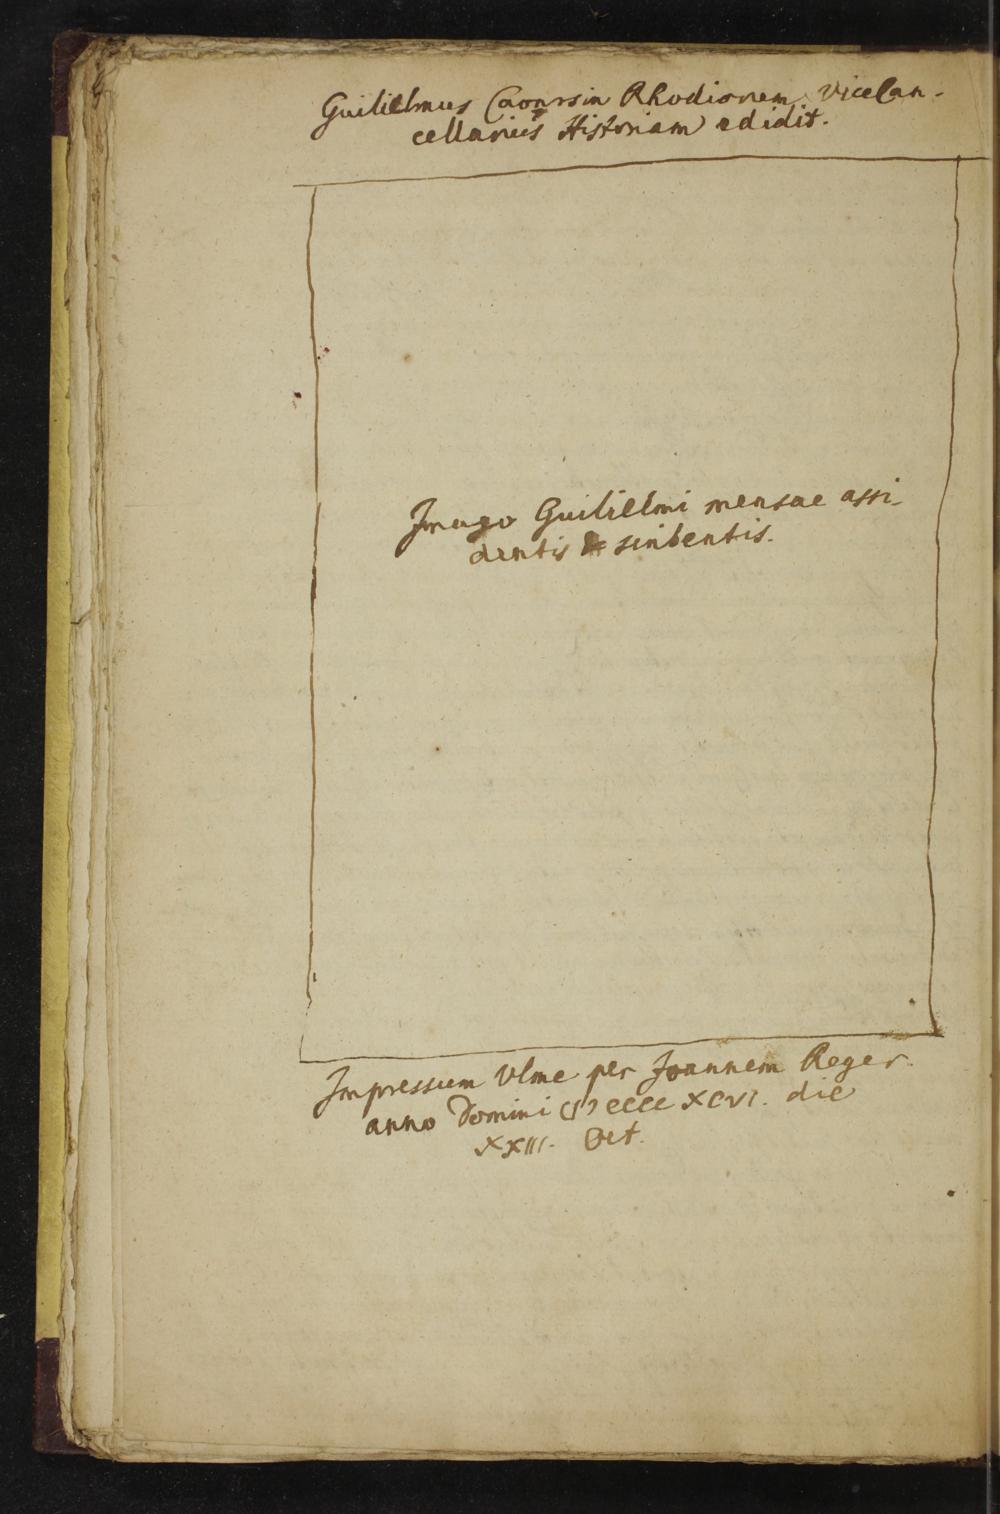 Guilielmus Caoursin Rhodiorum Vicecan-
cellarius Historiam edidit.
Imago Guilielmi mensae assi-
dentis & scribentis.
Impressum Vlme per Joannem Reger.
anno Domini CIƆ CCCC XCVI. die
XXIII. Oct.